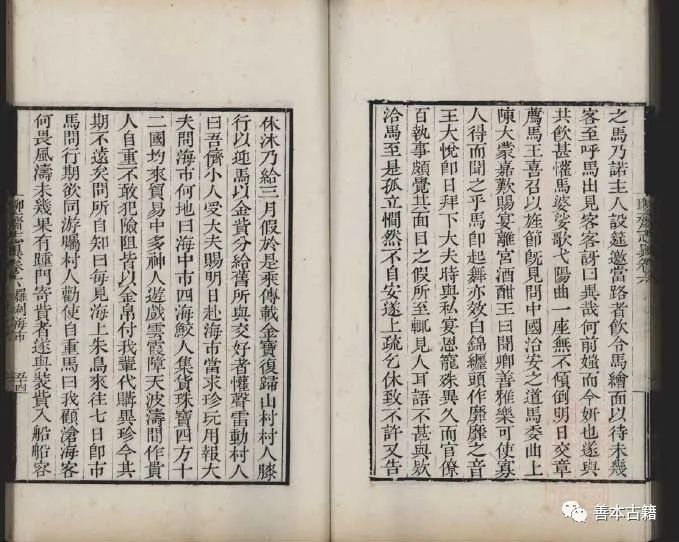 之馬乃諾主人設筵邀當路者飲令馬繪面以待未幾
客至呼馬出見客客訝曰異哉何前媸而今妍也遂與
共飲甚懽馬婆娑歌弋陽曲一座無不傾倒明日交章
薦馬王喜召以旌節旣見問中國治安之道馬委曲上
陳大蒙嘉歎賜宴離宮酒酣王曰聞卿善雅樂可使寡
人得而聞之乎馬卽起舞亦效白錦纏頭作靡靡之音
王大悅卽日拜下大夫時與私宴恩寵殊異久而官僚
百執事頗覺其面目之假所至輒見人耳語不甚與欵
洽馬至是孤立憪然不自安遂上疏乞休致不許又告
休沐乃給三月假於是乘傳載金寶復歸山村村人膝
行以迎馬以金貲分給舊所與交好者懽聲雷動村人
曰吾儕小人受大夫賜明日赴海市當求珍玩用報大
夫問海市何地曰海中市四海鮫人集貨珠寶四方十
二國均來貿易中多神人遊戲雲霞障天波濤間作貴
人自重不敢犯險阻皆以金帛付我輩代購異珍今其
期不遠矣問所自知曰每見海上朱鳥來往七日卽市
馬問行期欲同游矚村人勸使自重馬曰我顧滄海客
何畏風濤未幾果有踵門寄貲者遂與裝貲入船船容
聊齋志異卷六 羅刹海市
善本古籍